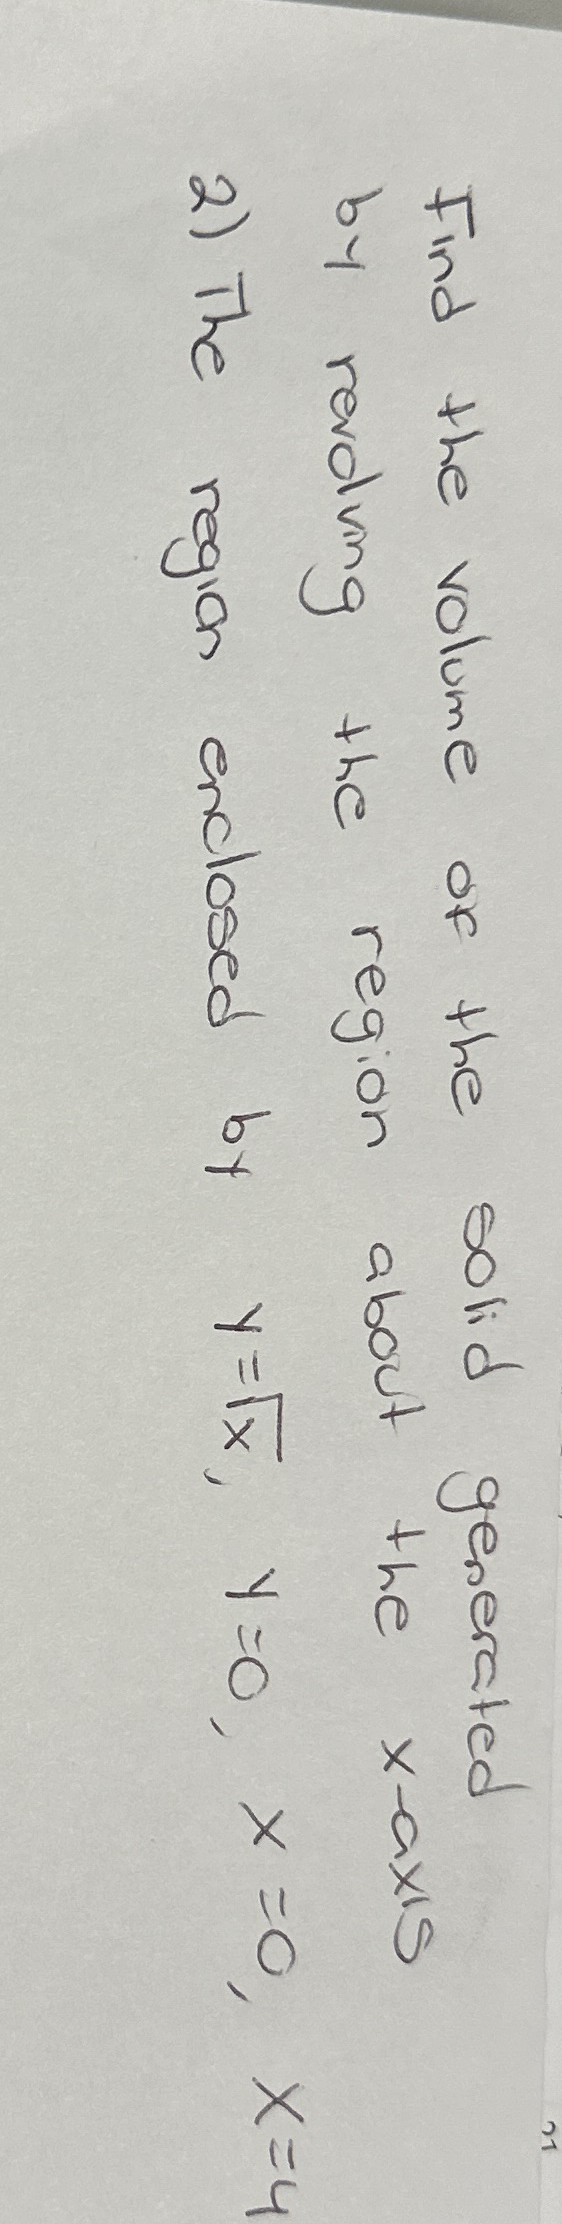 Find the volume of the solid generated
by revolving the region about the x-axis
2) The region enclosed by y=√x, y=0, x=0, x=4